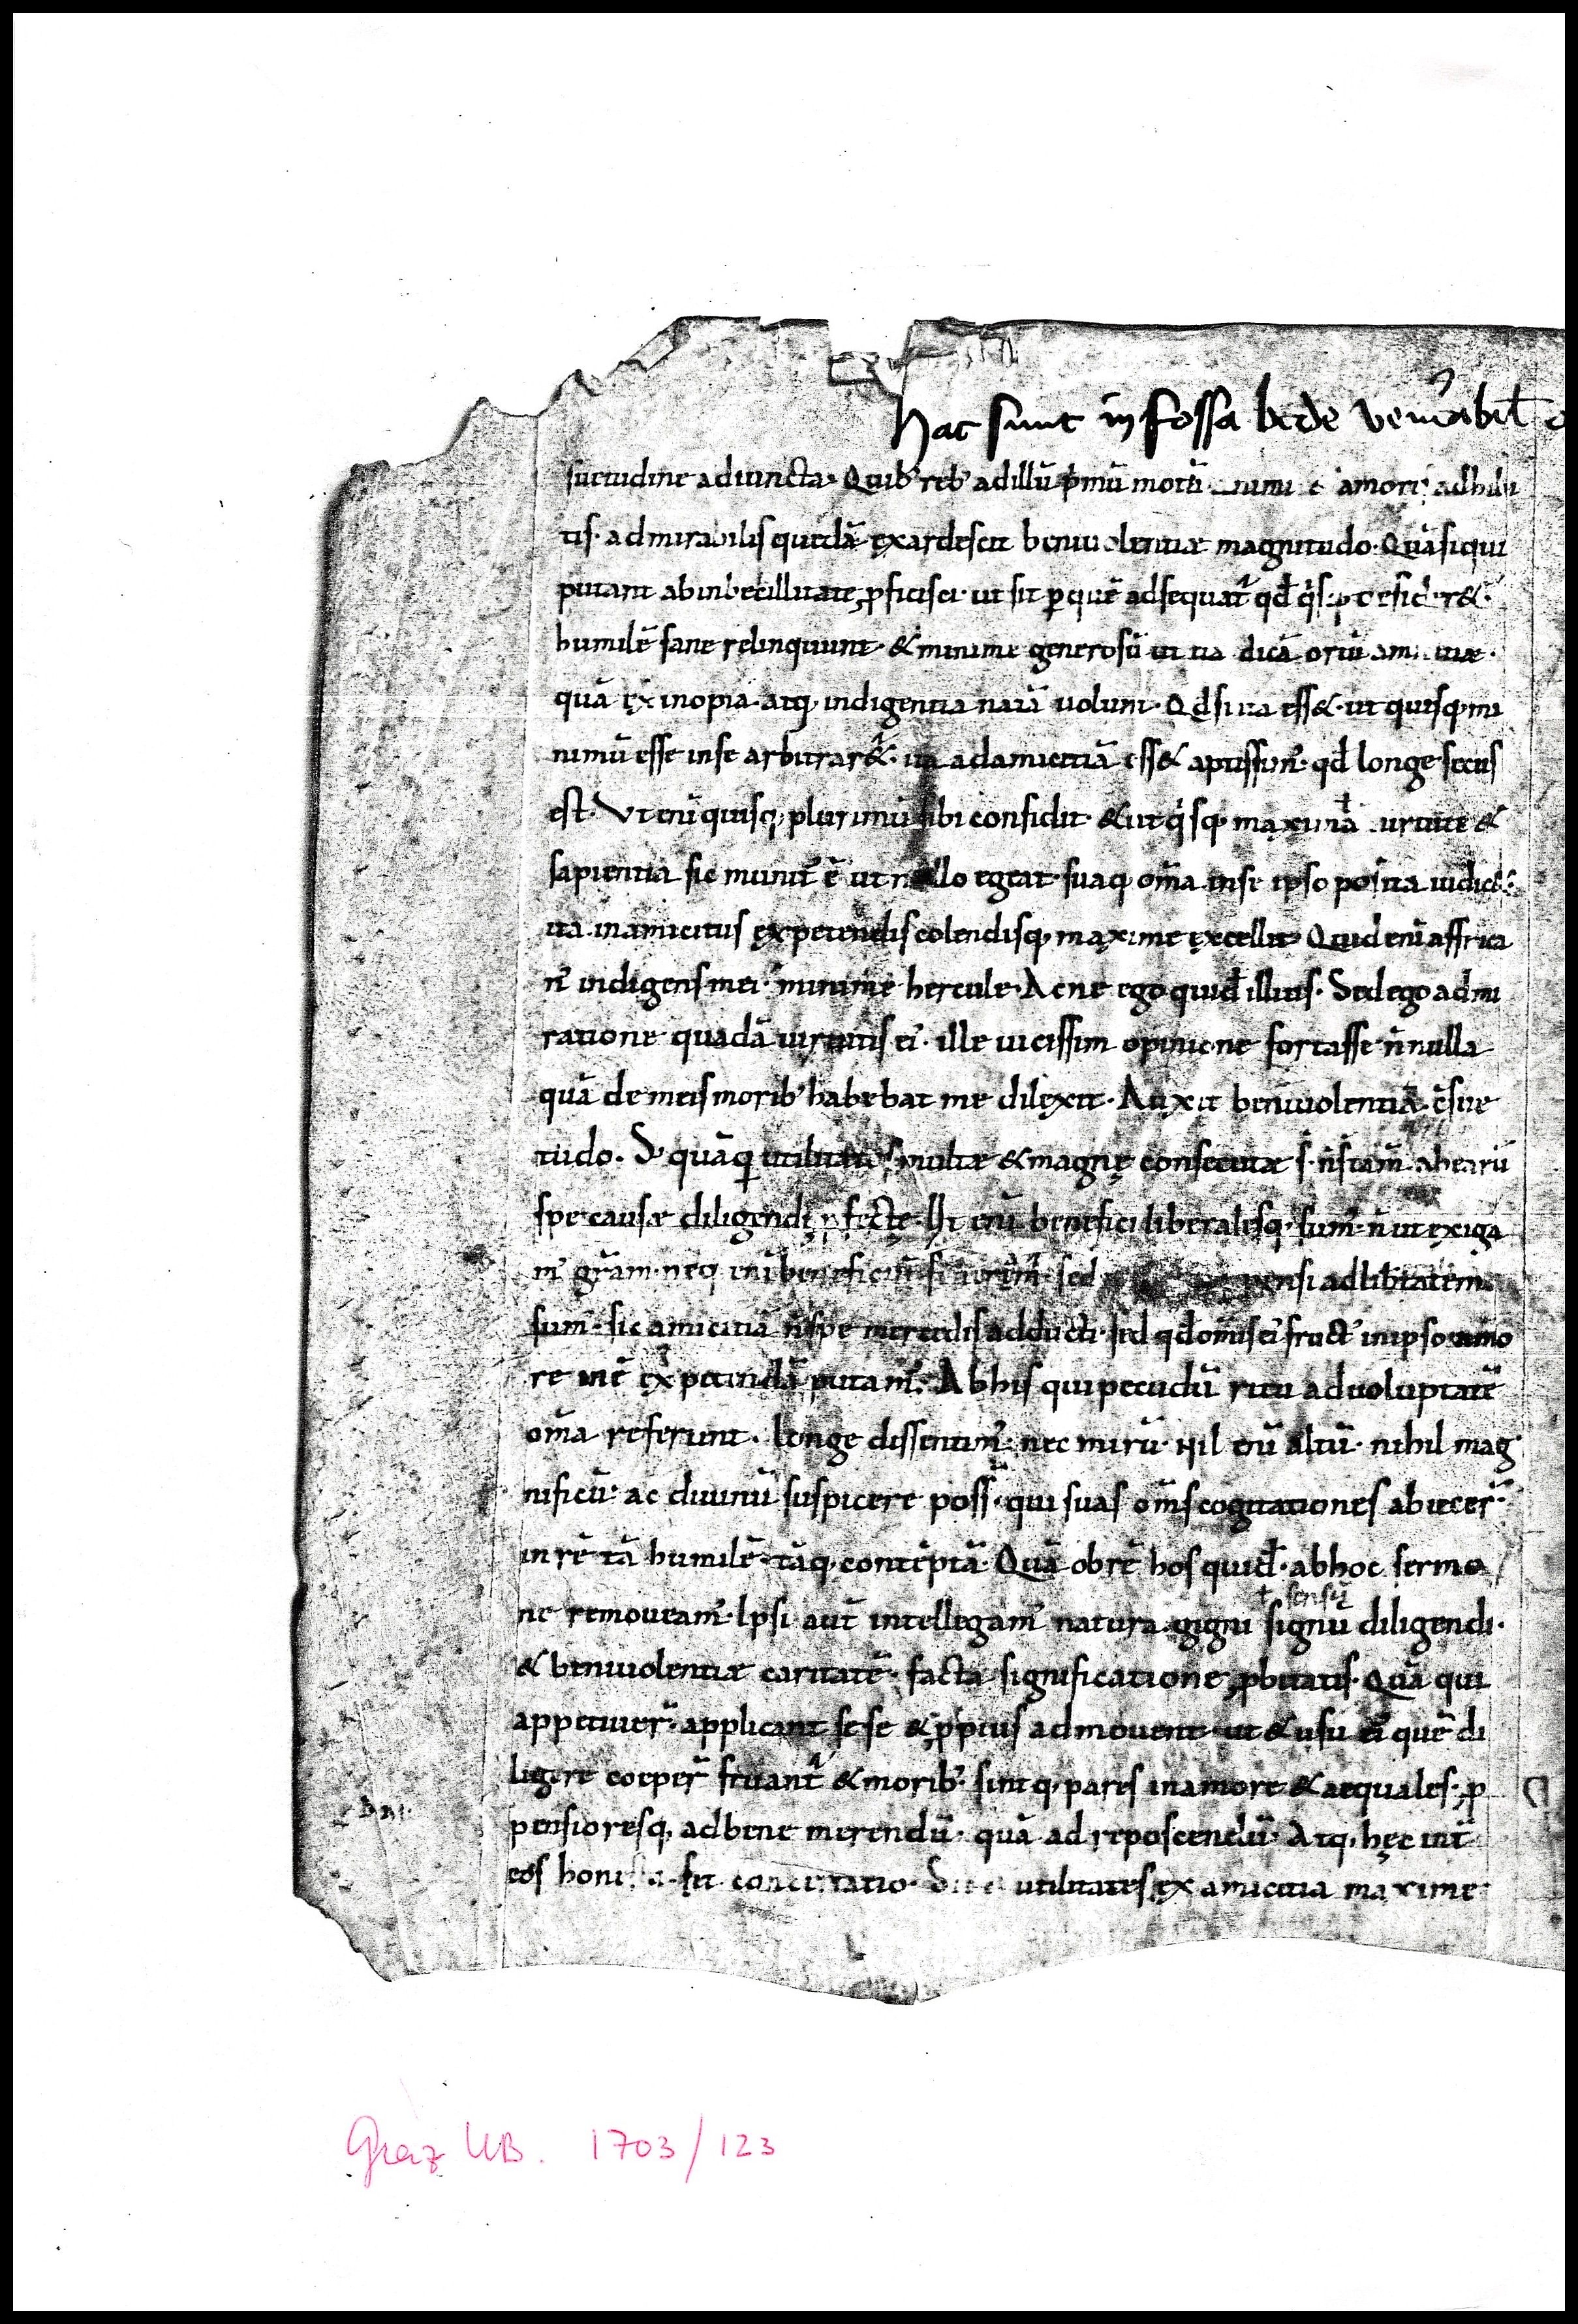 hac sunt in fossa bede venerabil̄
suetudine adiuncta. Quib' reb' adillū pmū motū amori adhibi
tis. admirabilis quedā exardescit beniuolentiae magnitudo. Quā siqui
putant abinbecillitate pficisci. ut sit p quē adsequat' qđ qs
humilē sane relinquunt. & minime generosū ut ita dicā ortū amicitiae.
quā ex inopia. atq, indigentia natā uolunt. Qđ si ita ess&. ut quisq, mi
nimū esse inse arbitrar&'. ita adamicitiā ess& aptissim'. qđ longe secus
est. Vt enī quisq, plurimū sibi confidit. & ut qsq, maximā uirtute &
sapientia sic munit' ē ut nullo egeat. suaq, om̄a inse ipso posita iudic&.
ita inamicitiis expetendis colendisq, maxime excellit. Quid enī affrica
n' indigens mei. minime hercule. Ac ne ego quid̄ illius. Sed ego admi
ratione quadā uirtutis ei'. ille uicissim opinione fortasse n̄nulla
quā de meis morib' habebat me dilexit. Auxit beniuolentiā c̄sue
tudo. S; quāq utilitates multae & magnę consecutae s̄. n̄ s̄ tam̄ abearū
spe causae diligendi pfectę. Vt enī benefici liberalesq, sum'. n̄ ut exiga
m' gr̄am. neq, enī beneficiū fenerem'. sed adlibtatem.
sum'. sic amicitiā n̄ spe mercedis adducti. sed qđ om̄is ei' fruct' inipso amo
re inē expetendā putam'. Abhis qui pecudū ritu aduoluptatē
om̄a referunt. longe dissentim'. nec mirū. Nil enī altū. nihil mag
nificū. ac diuinū suspicere poss̄. qui suas om̄s cogitationes abiecer̄.
in rē tā humilē. tāq, contēptā. Quā obrē hos quid̄. abhoc sermo
ne remoueam'. Ipsi aut̄ intellegam' natura gigni signū diligendi.
ł sensū
& beniuolentiae caritatē. facta significatione pbitatis. Quā qui
appetiuer̄. applicant sese & ppius admouent. ut & usu ei' quē di
ligere coeper̄ fruant' & morib'. sintq, pares inamore & aequales. p
pensioresq, adbene merendū. quā ad reposcendū. Atq, hęc int̄
eos honesta sit concertatio. utilitates ex amicitia maxime
Graz UB. 1703/123